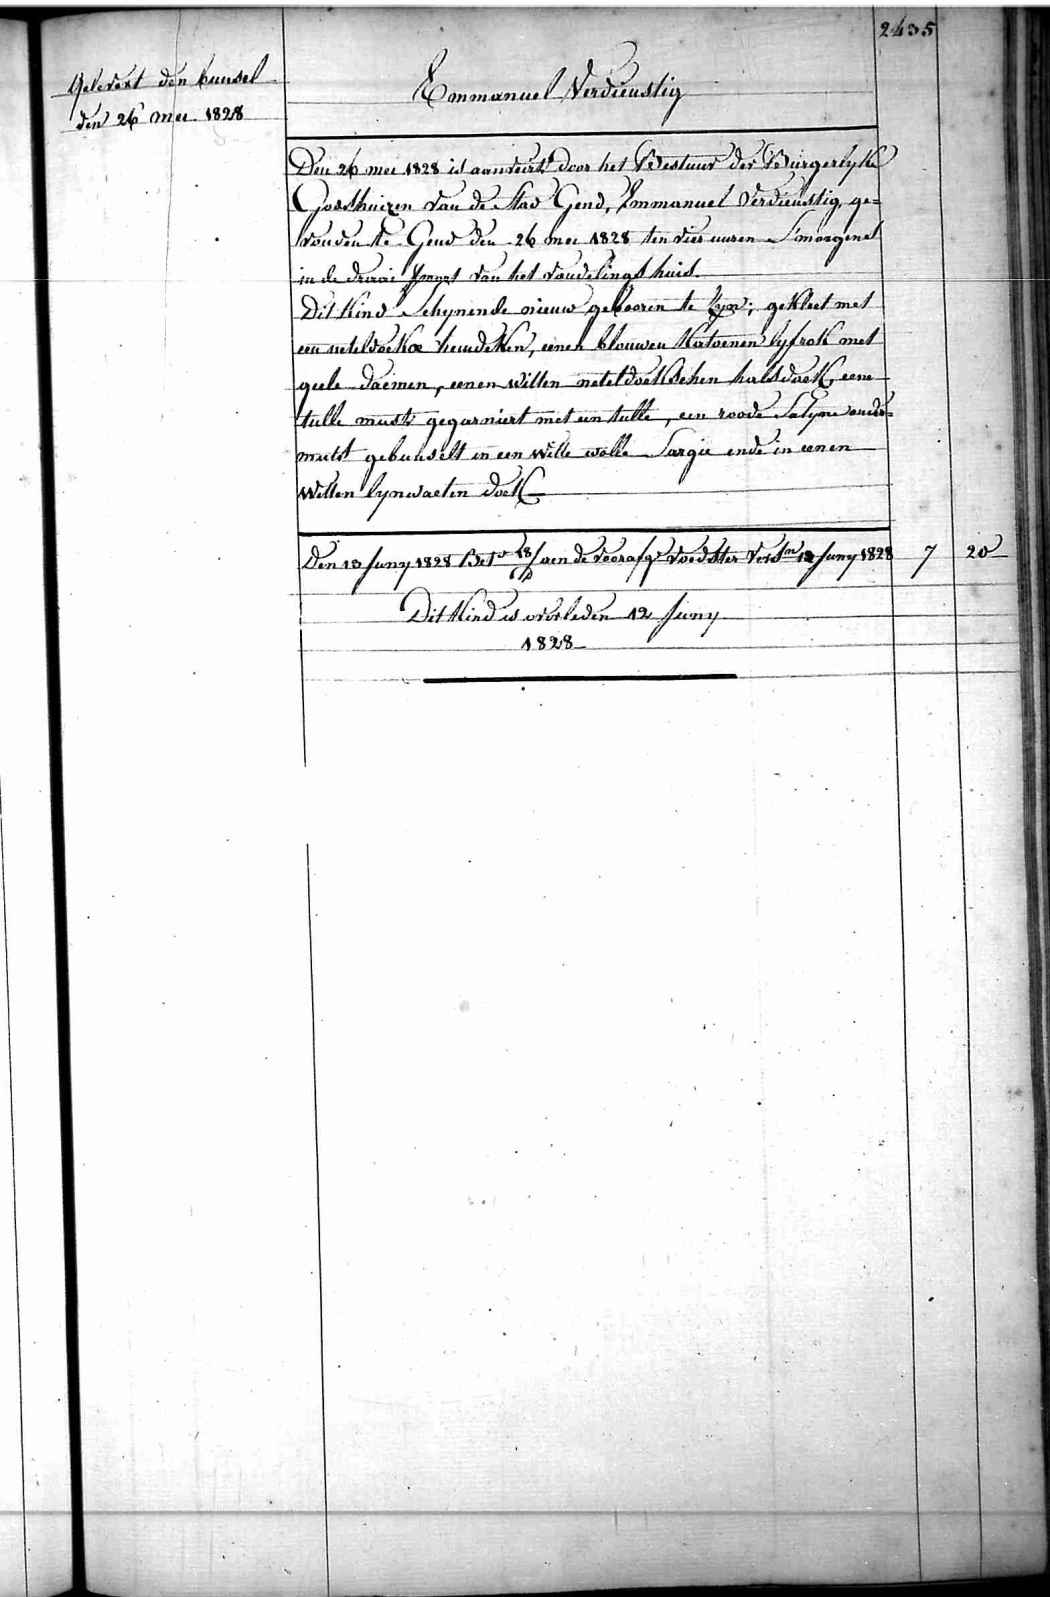 2435
Gelevert den bunsel
den 26 mei 1828
Emmanuel Verdienstig
Den 26 mei 1828 is aanveert door het Bestuur der Burgerlyke
Godshuizen van de Stad Gend, Emmanuel Verdienstig, ge=
vonden te Gend den 26 mei 1828 ten vier uuren Smorgens
in de draai van het vondelingshuis.
Dit Kind Schynende nieuw gebooren te Zyn; gekleet met
een neteldoeksche hemdeken, eenen blouwen Katoenen lyfrok met
geele , eenen witten neteldoekschen halsdoek, eene
tulle muts gegarniert met een tulle, een roode Satyne onder=
muts gebunselt in een witte wolle Sargie ende in eenen
witten lynwaeten doek
Den 13 Juny 1828 Bet aen de voorafg voedster 12 Juny 1828 7 20
Dit Kind is overleden 12 Juny
1828